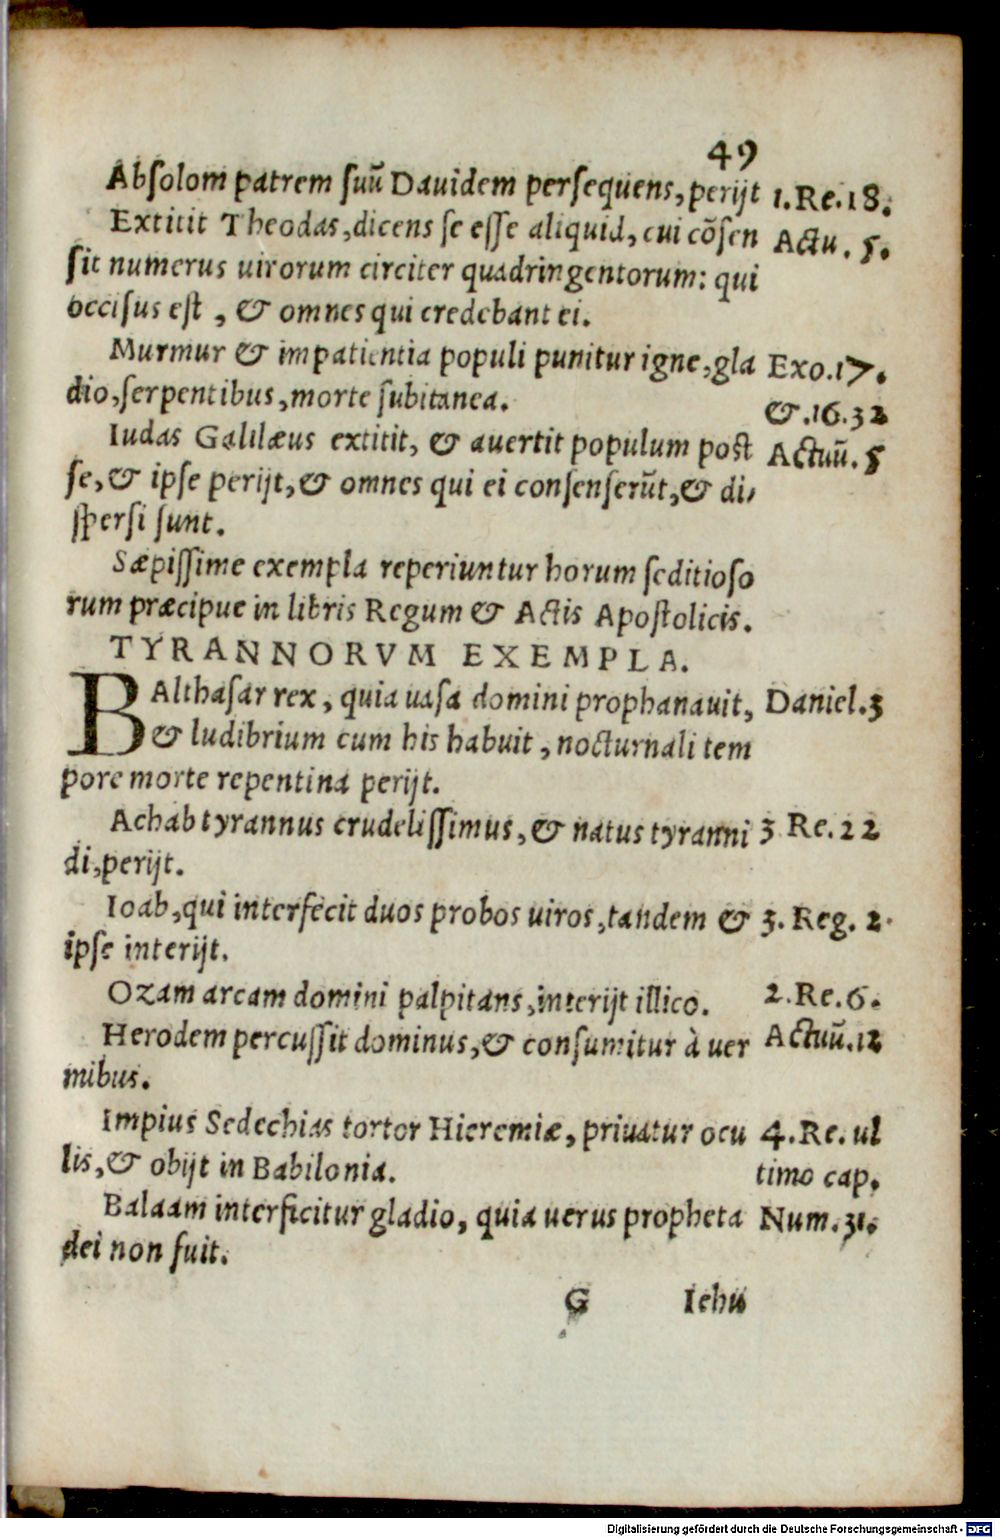 49
Absolom patrem suũ Dauidem persequens, perijt 1.Re.18.
Extitit Theodas, dicens se esse aliquid, cui cõsen Actu. 5.
sit numerus uirorum circiter quadringentorum: qui
occisus est, & omnes qui credebant ei.
Murmur & impatientia populi punitur igne, gla Exo.17.
dio, serpentibus, morte subitanea. &.16.32
Iudas Galilæus extitit, & auertit populum post Actuũ.5
se, & ipse perijt, & omnes qui ei consenserũt, & di,
spersi sunt.
Sæpissime exempla reperiuntur horum seditioso
rum præcipue in libris Regum & Actis Apostolicis.
TYRANNORVM EXEMPLA.
BAlthasar rex, quia uasa domini prophanauit, Daniel.3
& ludibrium cum his habuit, nocturnali tem
pore morte repentina perijt.
Achab tyrannus crudelissimus, & natus tyranni 3 Re.22
di, perijt.
Ioab, qui interfecit duos probos uiros, tandem & 3. Reg. 2.
ipse interijt.
Ozam arcam domini palpitans, interijt illico. 2.Re.6.
Herodem percussit dominus, & consumitur à uer Actuũ.12
mibus.
Impius Sedechias tortor Hieremiæ, priuatur ocu 4.Re. ul
lis, & obijt in Babilonia. timo cap.
Balaam interficitur gladio, quia uerus propheta Num.31.
dei non fuit.
G Iehu
Digitalisierung gefördert durch die Deutsche Forschungsgemeinschaft - DFG